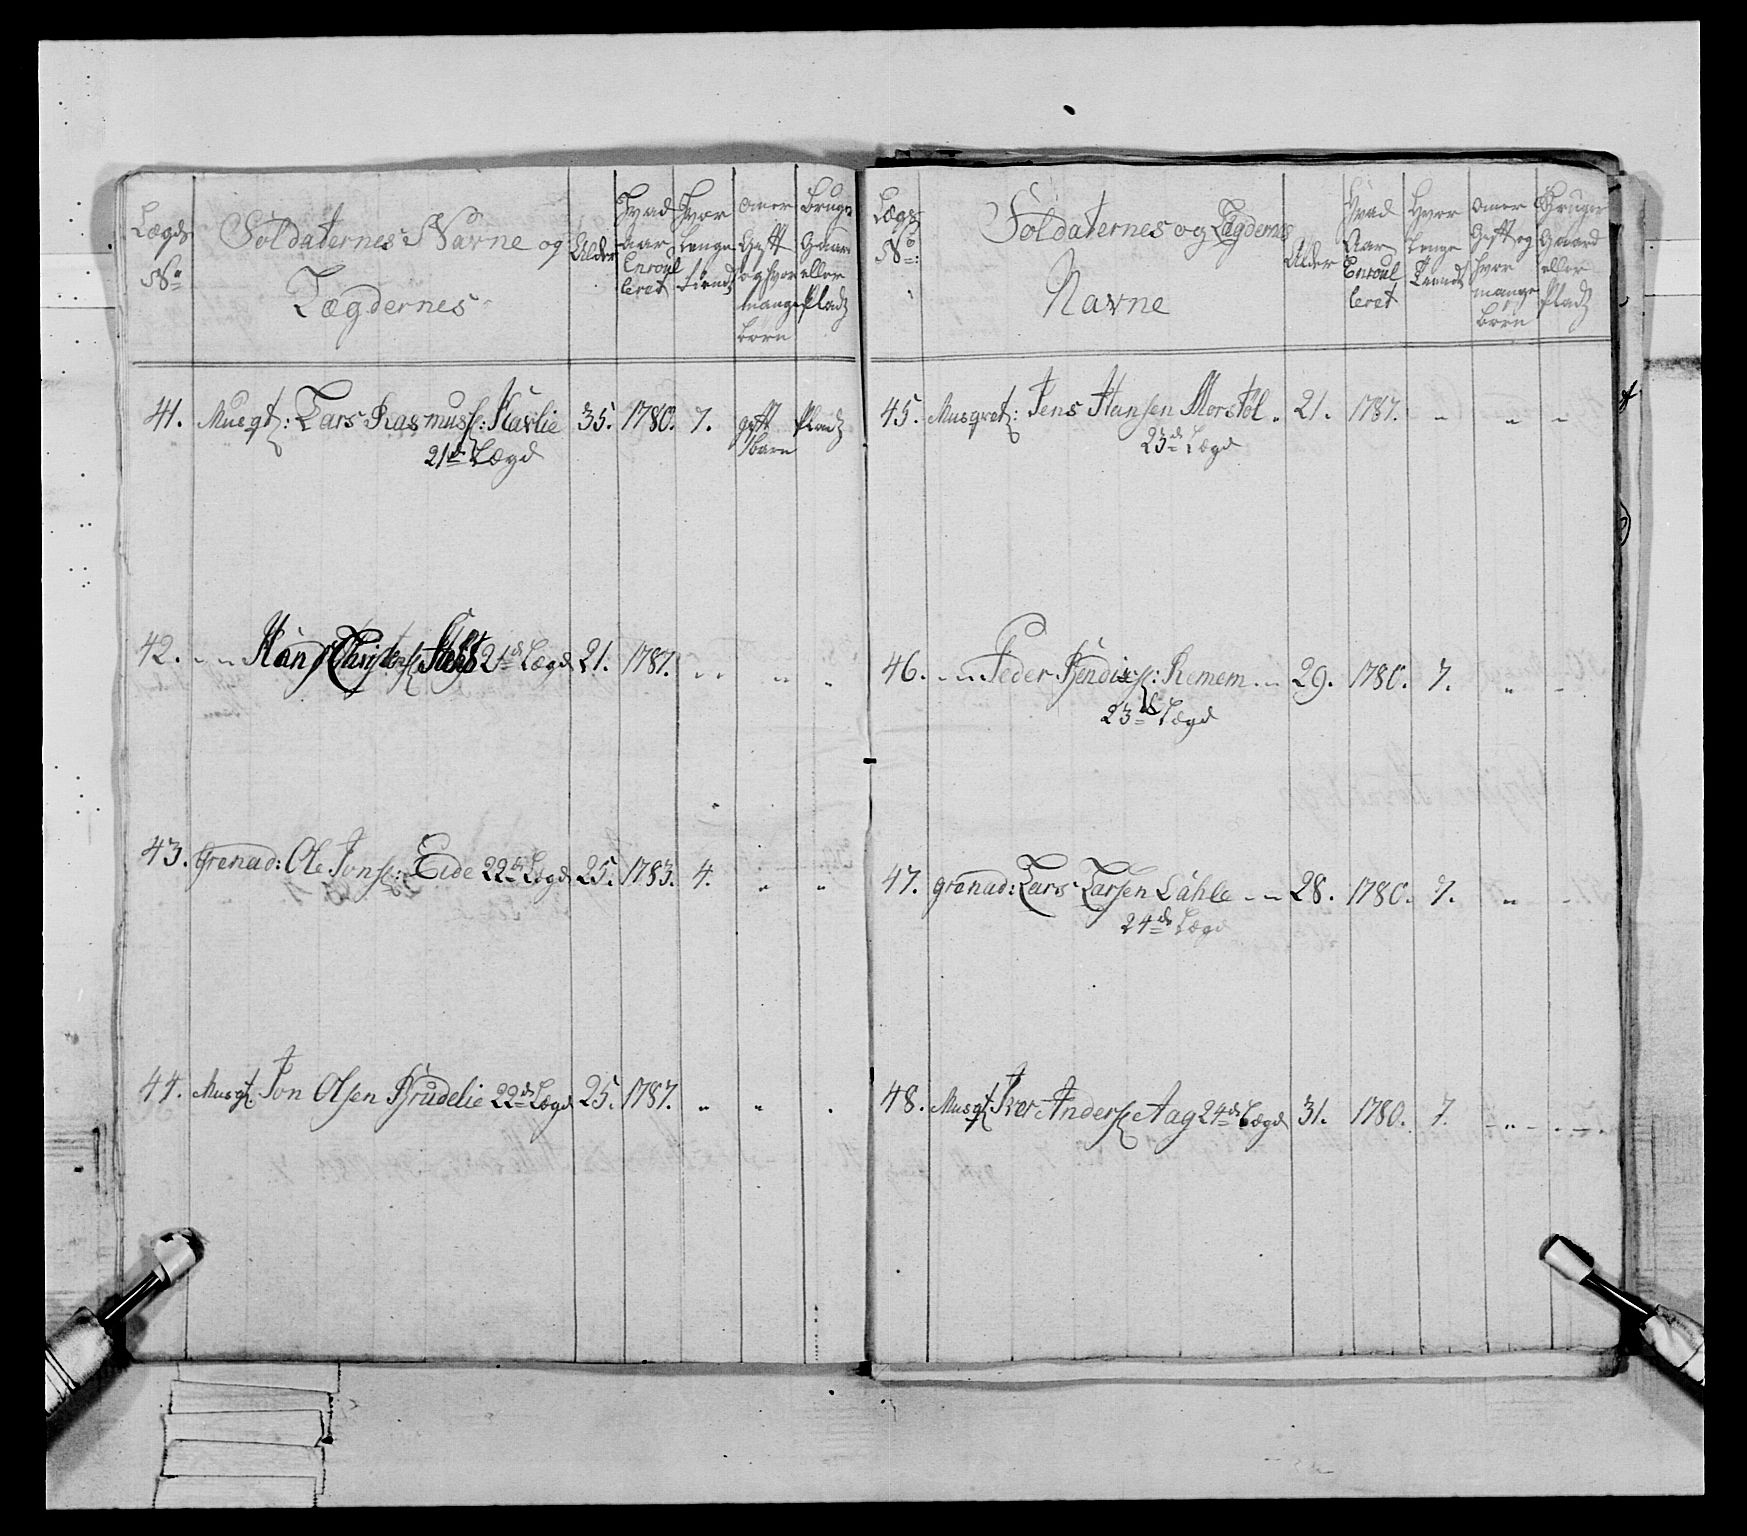 Lægds No
Soldaternes Navne og Lægdernes
Alder
Hvad Aar Enroulleret
Hvor Lenge tient
om er Gift og hvor mange børn
Bruger Gaard eller Pladz
41. Musqt: Lars Rasmuss: Havlie 35. 1780. 7. gift Pladz
21de Lægd 1 barn
42. " " Hans 21de Lægd 21. 1787. " " "
43. Grenad: Ole Jons: Eide 22de Lægd 25. 1783. 4. " "
44. Musqt Jon Olsen Brudelie 22de Lægd 25. 1787. " " "
Lægs No:
Soldaternes og Lægdernes Navne
Alder
Hvad Aar Enroulleret
Hvor Lenge Tient
om er Gift og hvor mange børn
Bruger Gaard eller Pladz
45. Musqret: Jens Hansen Morstøl " 21. 1787. " " "
23de Lægd
46. " " Peder Bendixs: Remem " " 29. 1780. 7. " "
23de Lægd
47. grenad: Lars Larsen Dahle " " 28. 1780. 7. " "
24de Lægd
48. Musqt Iver Anders Aag 24de Lægd 31. 1780. 7. " "